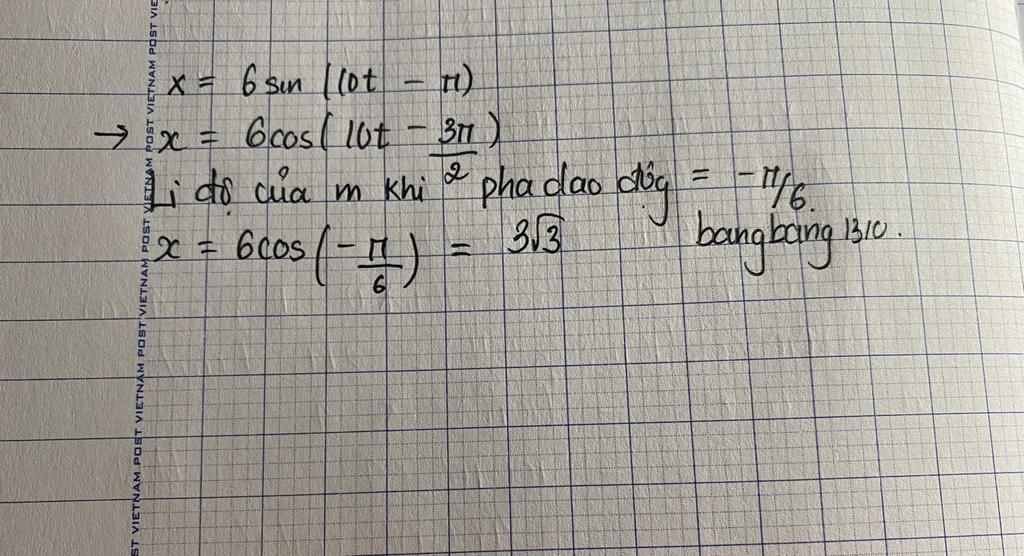 x = 6 sin (10t - π)
→ x = 6cos(10t - 3π/2)
Li độ của m khi pha dao độg = -π/6.
x = 6cos(-π/6) = 3√3
bangbang1310.
VIETNAM POST VIETNAM POST VIETNAM POST VIETNAM POST VIETNAM POST VIETNAM POST